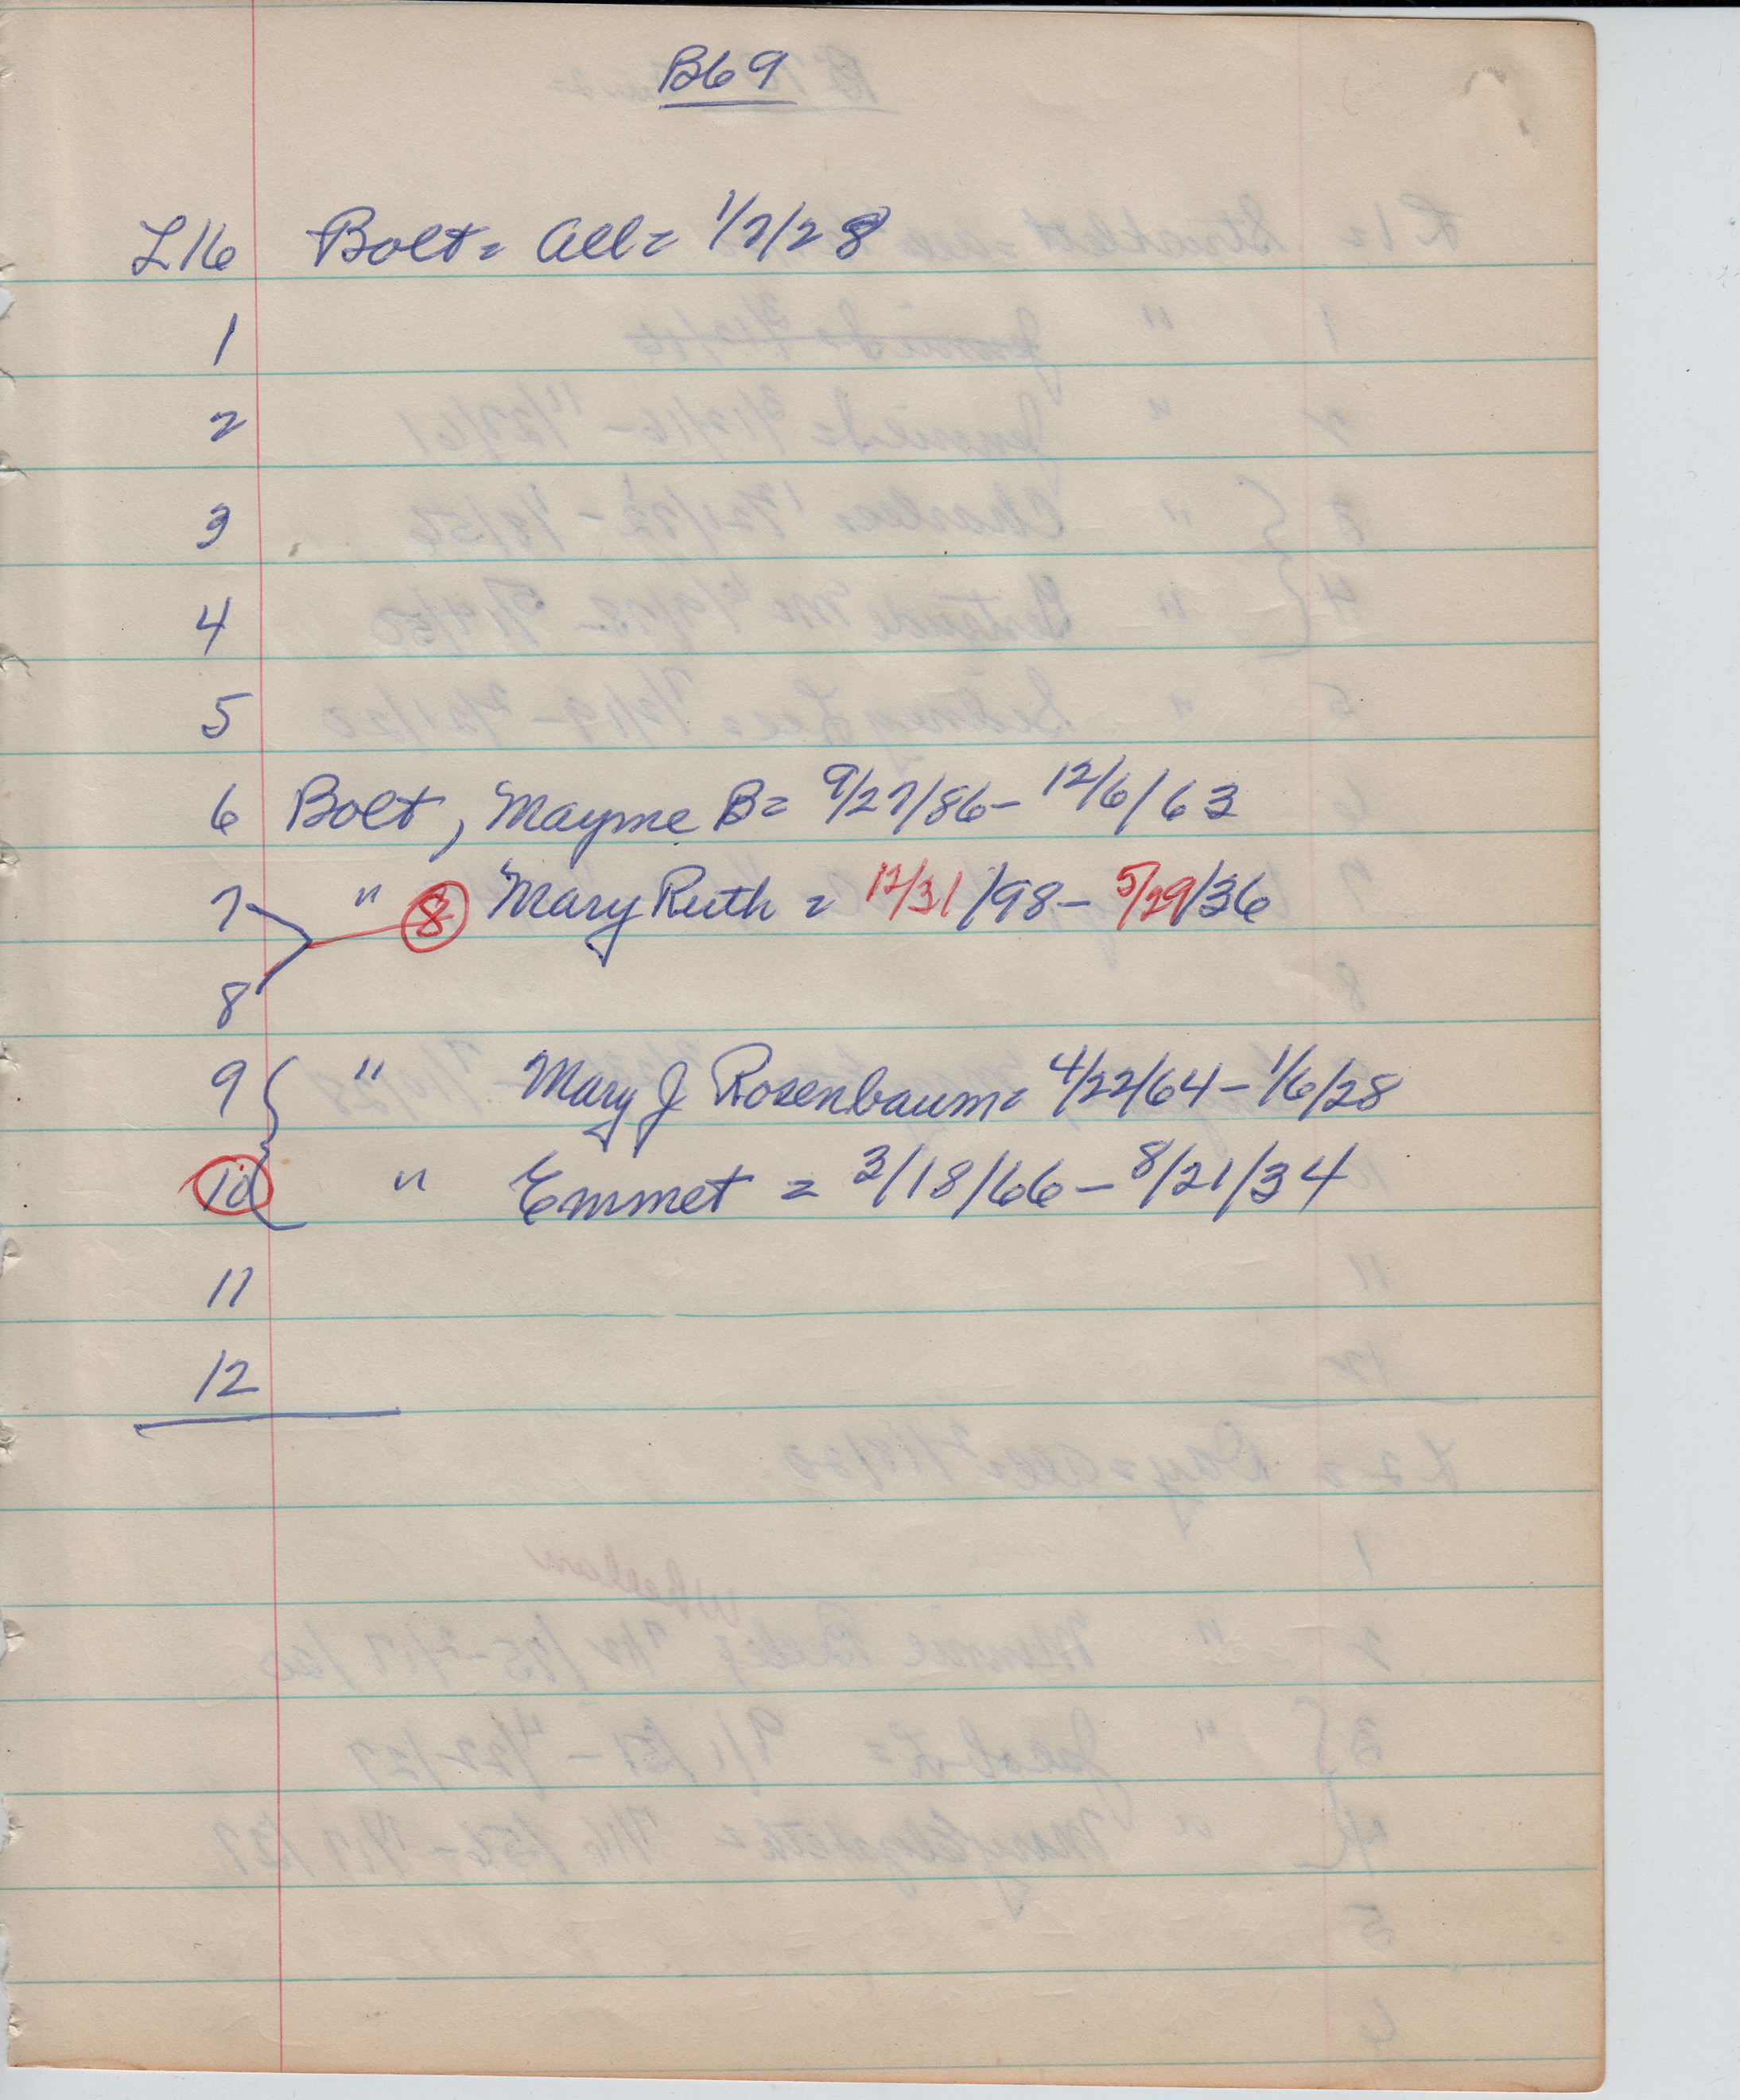 B69
L16 Bolt = All = 1/7/28
1
2
3
4
5
6 Bolt, Mayme B = 9/27/86 - 12/6/63
7 " 8 Mary Ruth = 12/31/98 - 5/29/36
8
9 " Mary J Rosenbaum = 4/22/64 - 1/6/28
10 " Emmet = 3/18/66 - 8/21/34
11
12